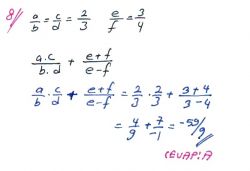 8/ a/b = c/d = 2/3   e/f = 3/4
a.c/b.d + e+f/e-f
a/b . c/d + e+f/e-f = 2/3 . 2/3 + 3+4/3-4
= 4/9 + 7/-1 = -59/9
CEVAP: A